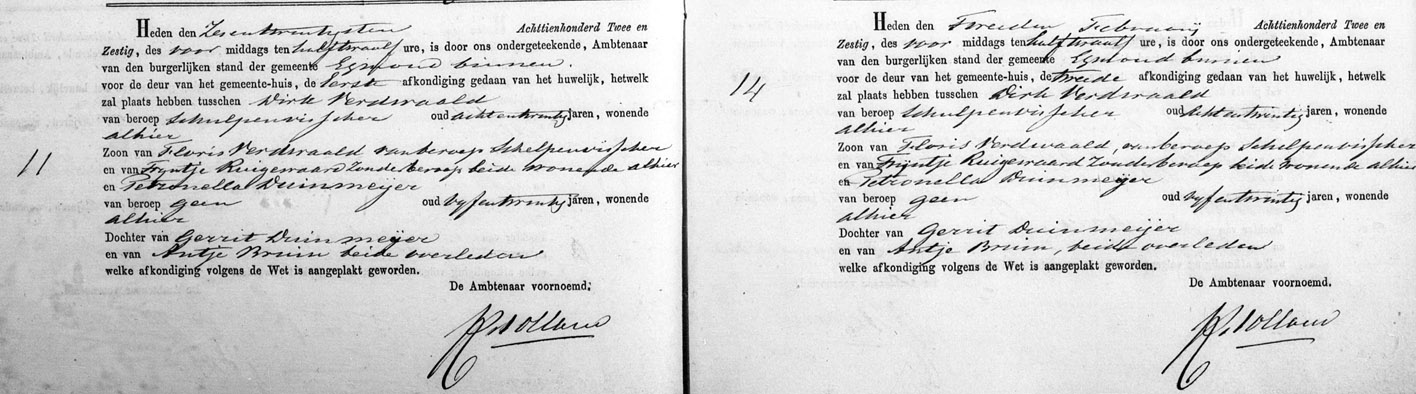 Heden den Zesentwintigsten Achttienhonderd Twee en
Zestig, des voor middags ten half twaalf ure, is door ons ondergeteekende, Ambtenaar
van den burgerlijken stand der gemeente Egmond binnen.
voor de deur van het gemeente-huis, de eerste afkondiging gedaan van het huwelijk, hetwelk
zal plaats hebben tusschen Dirk Verdwaald
van beroep Schulpenvisscher oud achtentwintig jaren, wonende
alhier
11
Zoon van Floris Verdwaald van beroep Schelpenvisscher
en van Tryntje Ruigewaard Zonder beroep beide wonende alhier
en Petronella Duinmeijer
van beroep geen oud vyfentwintig jaren, wonende
alhier
Dochter van Gerrit Duinmeijer
en van Antje Bruin beide overleden
welke afkondiging volgens de Wet is aangeplakt geworden.
De Ambtenaar voornoemd.
Heden den Tweeden Februarij Achttienhonderd Twee en
Zestig, des voor middags ten half twaalf ure, is door ons ondergeteekende, Ambtenaar
van den burgerlijken stand der gemeente Egmond binnen
14
voor de deur van het gemeente-huis, de tweede afkondiging gedaan van het huwelijk, hetwelk
zal plaats hebben tusschen Dirk Verdwaald
van beroep Schulpenvisscher oud achtentwintig jaren, wonende
alhier
Zoon van Floris Verdwaald, van beroep Schelpenvisscher
en van Tryntje Ruigewaard Zonder beroep beide wonende alhier
en Petronella Duinmeijer
van beroep geen oud vyfentwintig jaren, wonende
alhier
Dochter van Gerrit Duinmeijer
en van Antje Bruin, beide overleden
welke afkondiging volgens de Wet is aangeplakt geworden.
De Ambtenaar voornoemd.